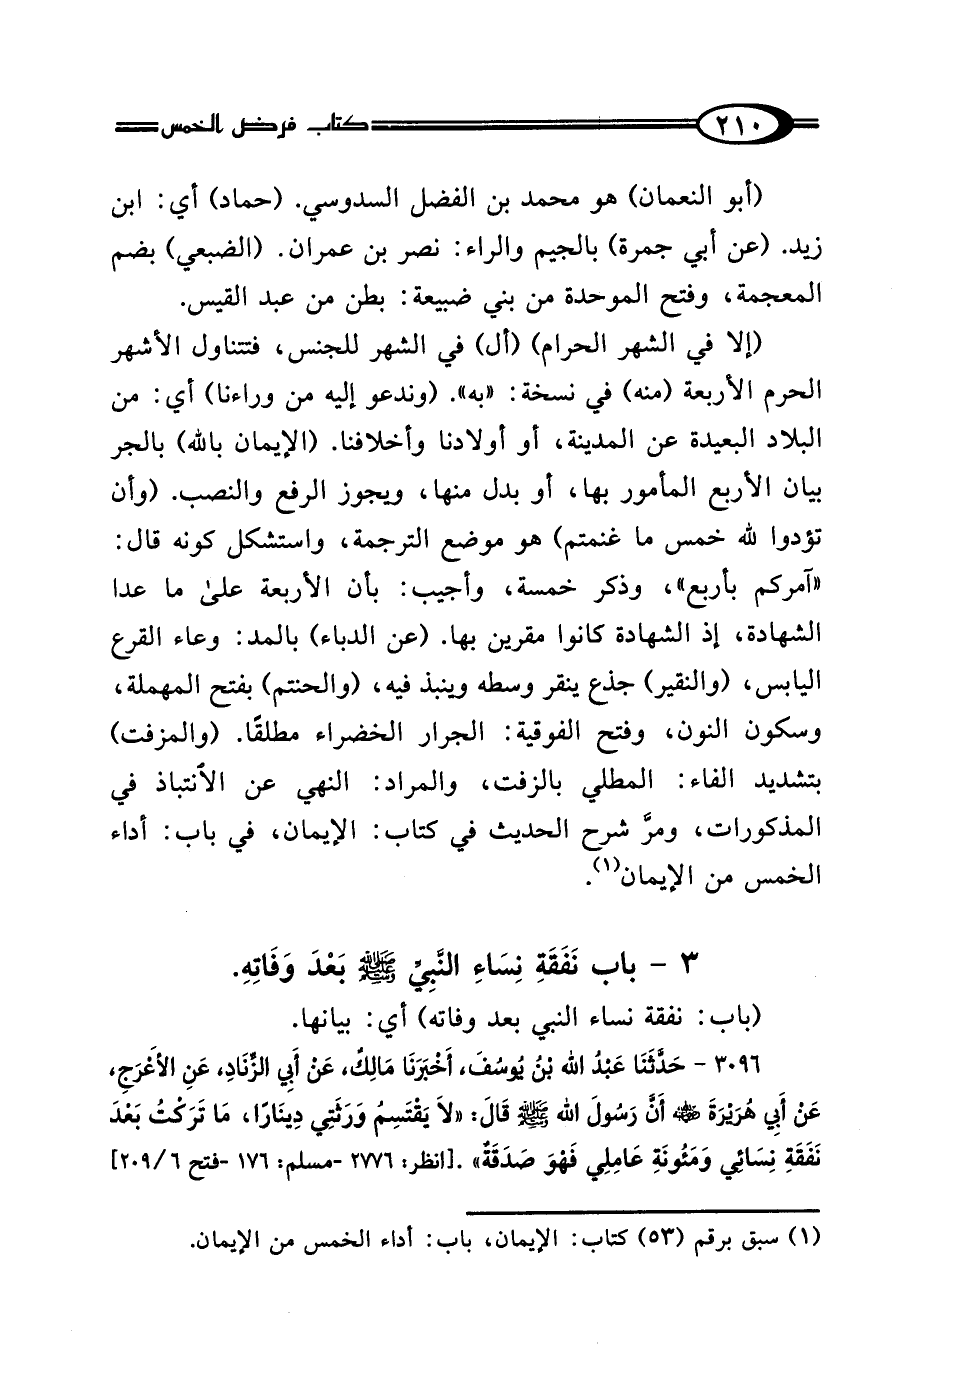 ٢١٠ كتاب فرض الخمس
(أبو النعمان) هو محمد بن الفضل السدوسي. (حماد) أي: ابن
زيد. (عن أبي جمرة) بالجيم والراء: نصر بن عمران. (الضبعي) بضم
المعجمة، وفتح الموحدة من بني ضبيعة: بطن من عبد القيس.
(إلا في الشهر الحرام) (أل) في الشهر للجنس، فتتناول الأشهر
الحرم الأربعة (منه) في نسخة: «به». (وندعو إليه من وراءنا) أي: من
البلاد البعيدة عن المدينة، أو أولادنا وأخلافنا. (الإيمان بالله) بالجر
بيان الأربع المأمور بها، أو بدل منها، ويجوز الرفع والنصب. (وأن
تؤدوا لله خمس ما غنمتم) هو موضع الترجمة، واستشكل كونه قال:
«آمركم بأربع»، وذكر خمسة، وأجيب: بأن الأربعة علىٰ ما عدا
الشهادة، إذ الشهادة كانوا مقرين بها. (عن الدباء) بالمد: وعاء القرع
اليابس، (والنقير) جذع ينقر وسطه وينبذ فيه، (والحنتم) بفتح المهملة،
وسكون النون، وفتح الفوقية: الجرار الخضراء مطلقًا. (والمزفت)
بتشديد الفاء: المطلي بالزفت، والمراد: النهي عن الأنتباذ في
المذكورات، ومرَّ شرح الحديث في كتاب: الإيمان، في باب: أداء
الخمس من الإيمان(١).
٣ - باب نَفَقَةِ نِسَاءِ النَّبِيِّ ﷺ بَعْدَ وَفَاتِهِ.
(باب: نفقة نساء النبي بعد وفاته) أي: بيانها.
٣٠٩٦ - حَدَّثَنَا عَبْدُ الله بْنُ يُوسُفَ، أَخْبَرَنَا مَالِكٌ، عَنْ أَبِي الزِّنَادِ، عَنِ الأَعْرَجِ،
عَنْ أَبِي هُرَيْرَةَ ﵁ أَنَّ رَسُولَ الله ﷺ قَالَ: «لاَ يَقْتَسِمُ وَرَثَتِي دِينَارًا، مَا تَرَكْتُ بَعْدَ
نَفَقَةِ نِسَائِي وَمَئُونَةِ عَامِلِي فَهْوَ صَدَقَةٌ» .[انظر: ٢٧٧٦ -مسلم: ١٧٦ -فتح ٢٠٩/٦]
(١) سبق برقم (٥٣) كتاب: الإيمان، باب: أداء الخمس من الإيمان.